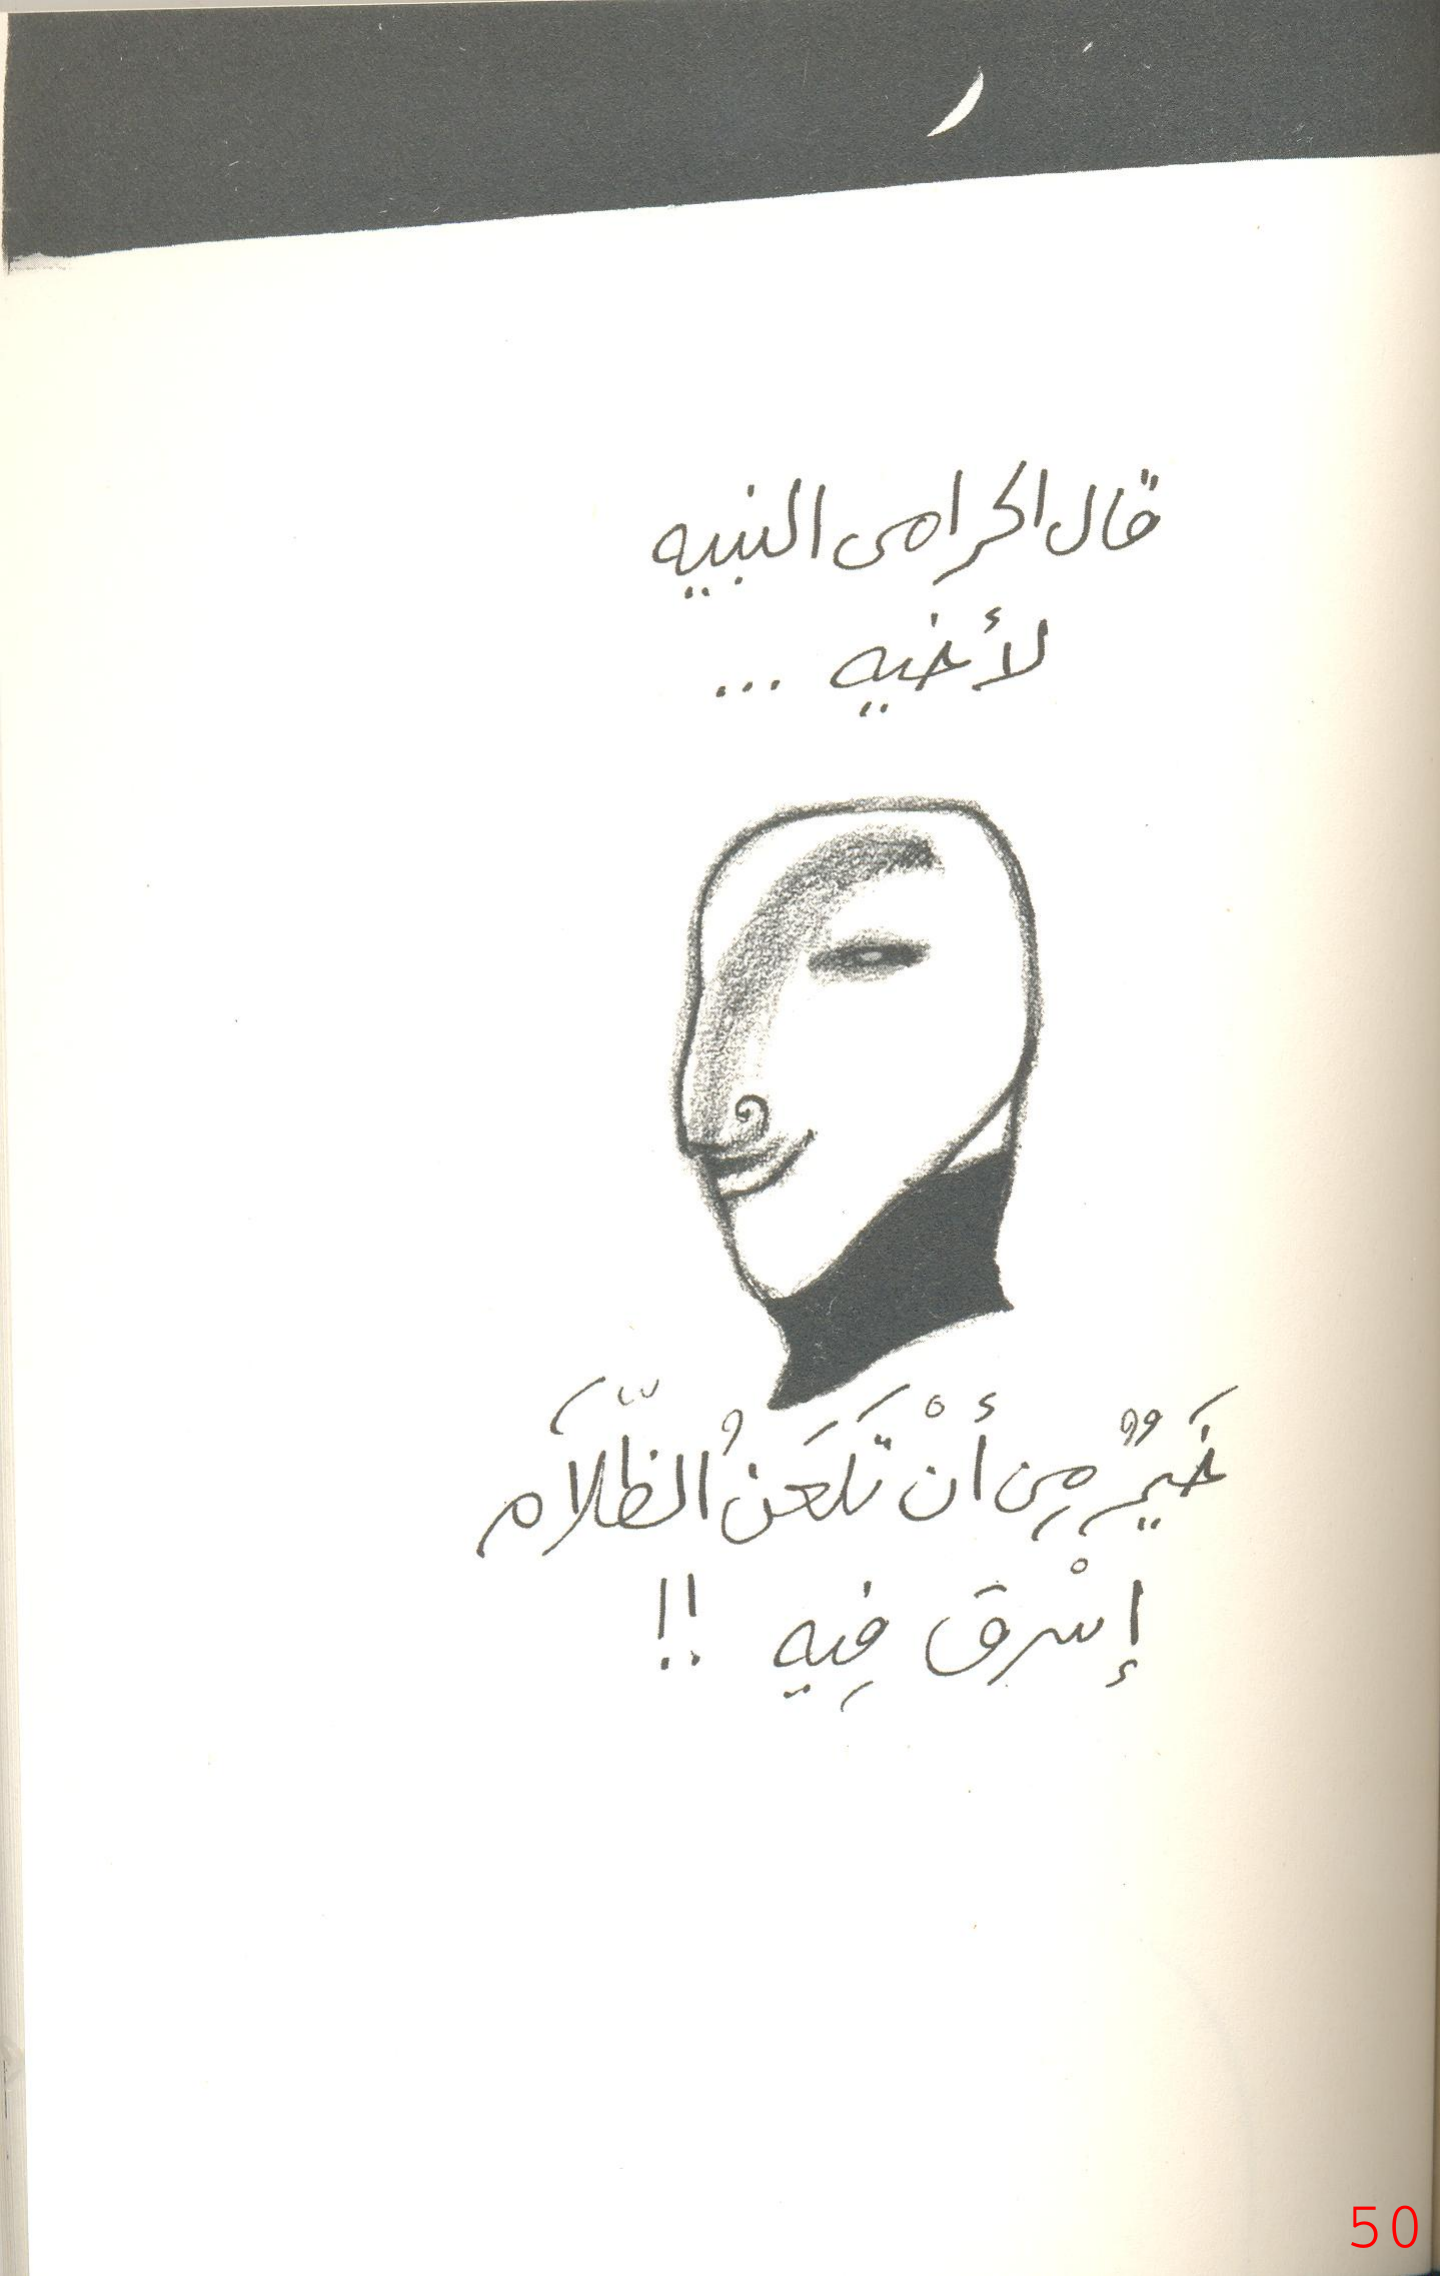 قال الحرامى النبيه
لأخيه ...
خَيرٌ مِن أنْ تَلعَنُ الظّلَامَ
إسْرق فِيه !!
50